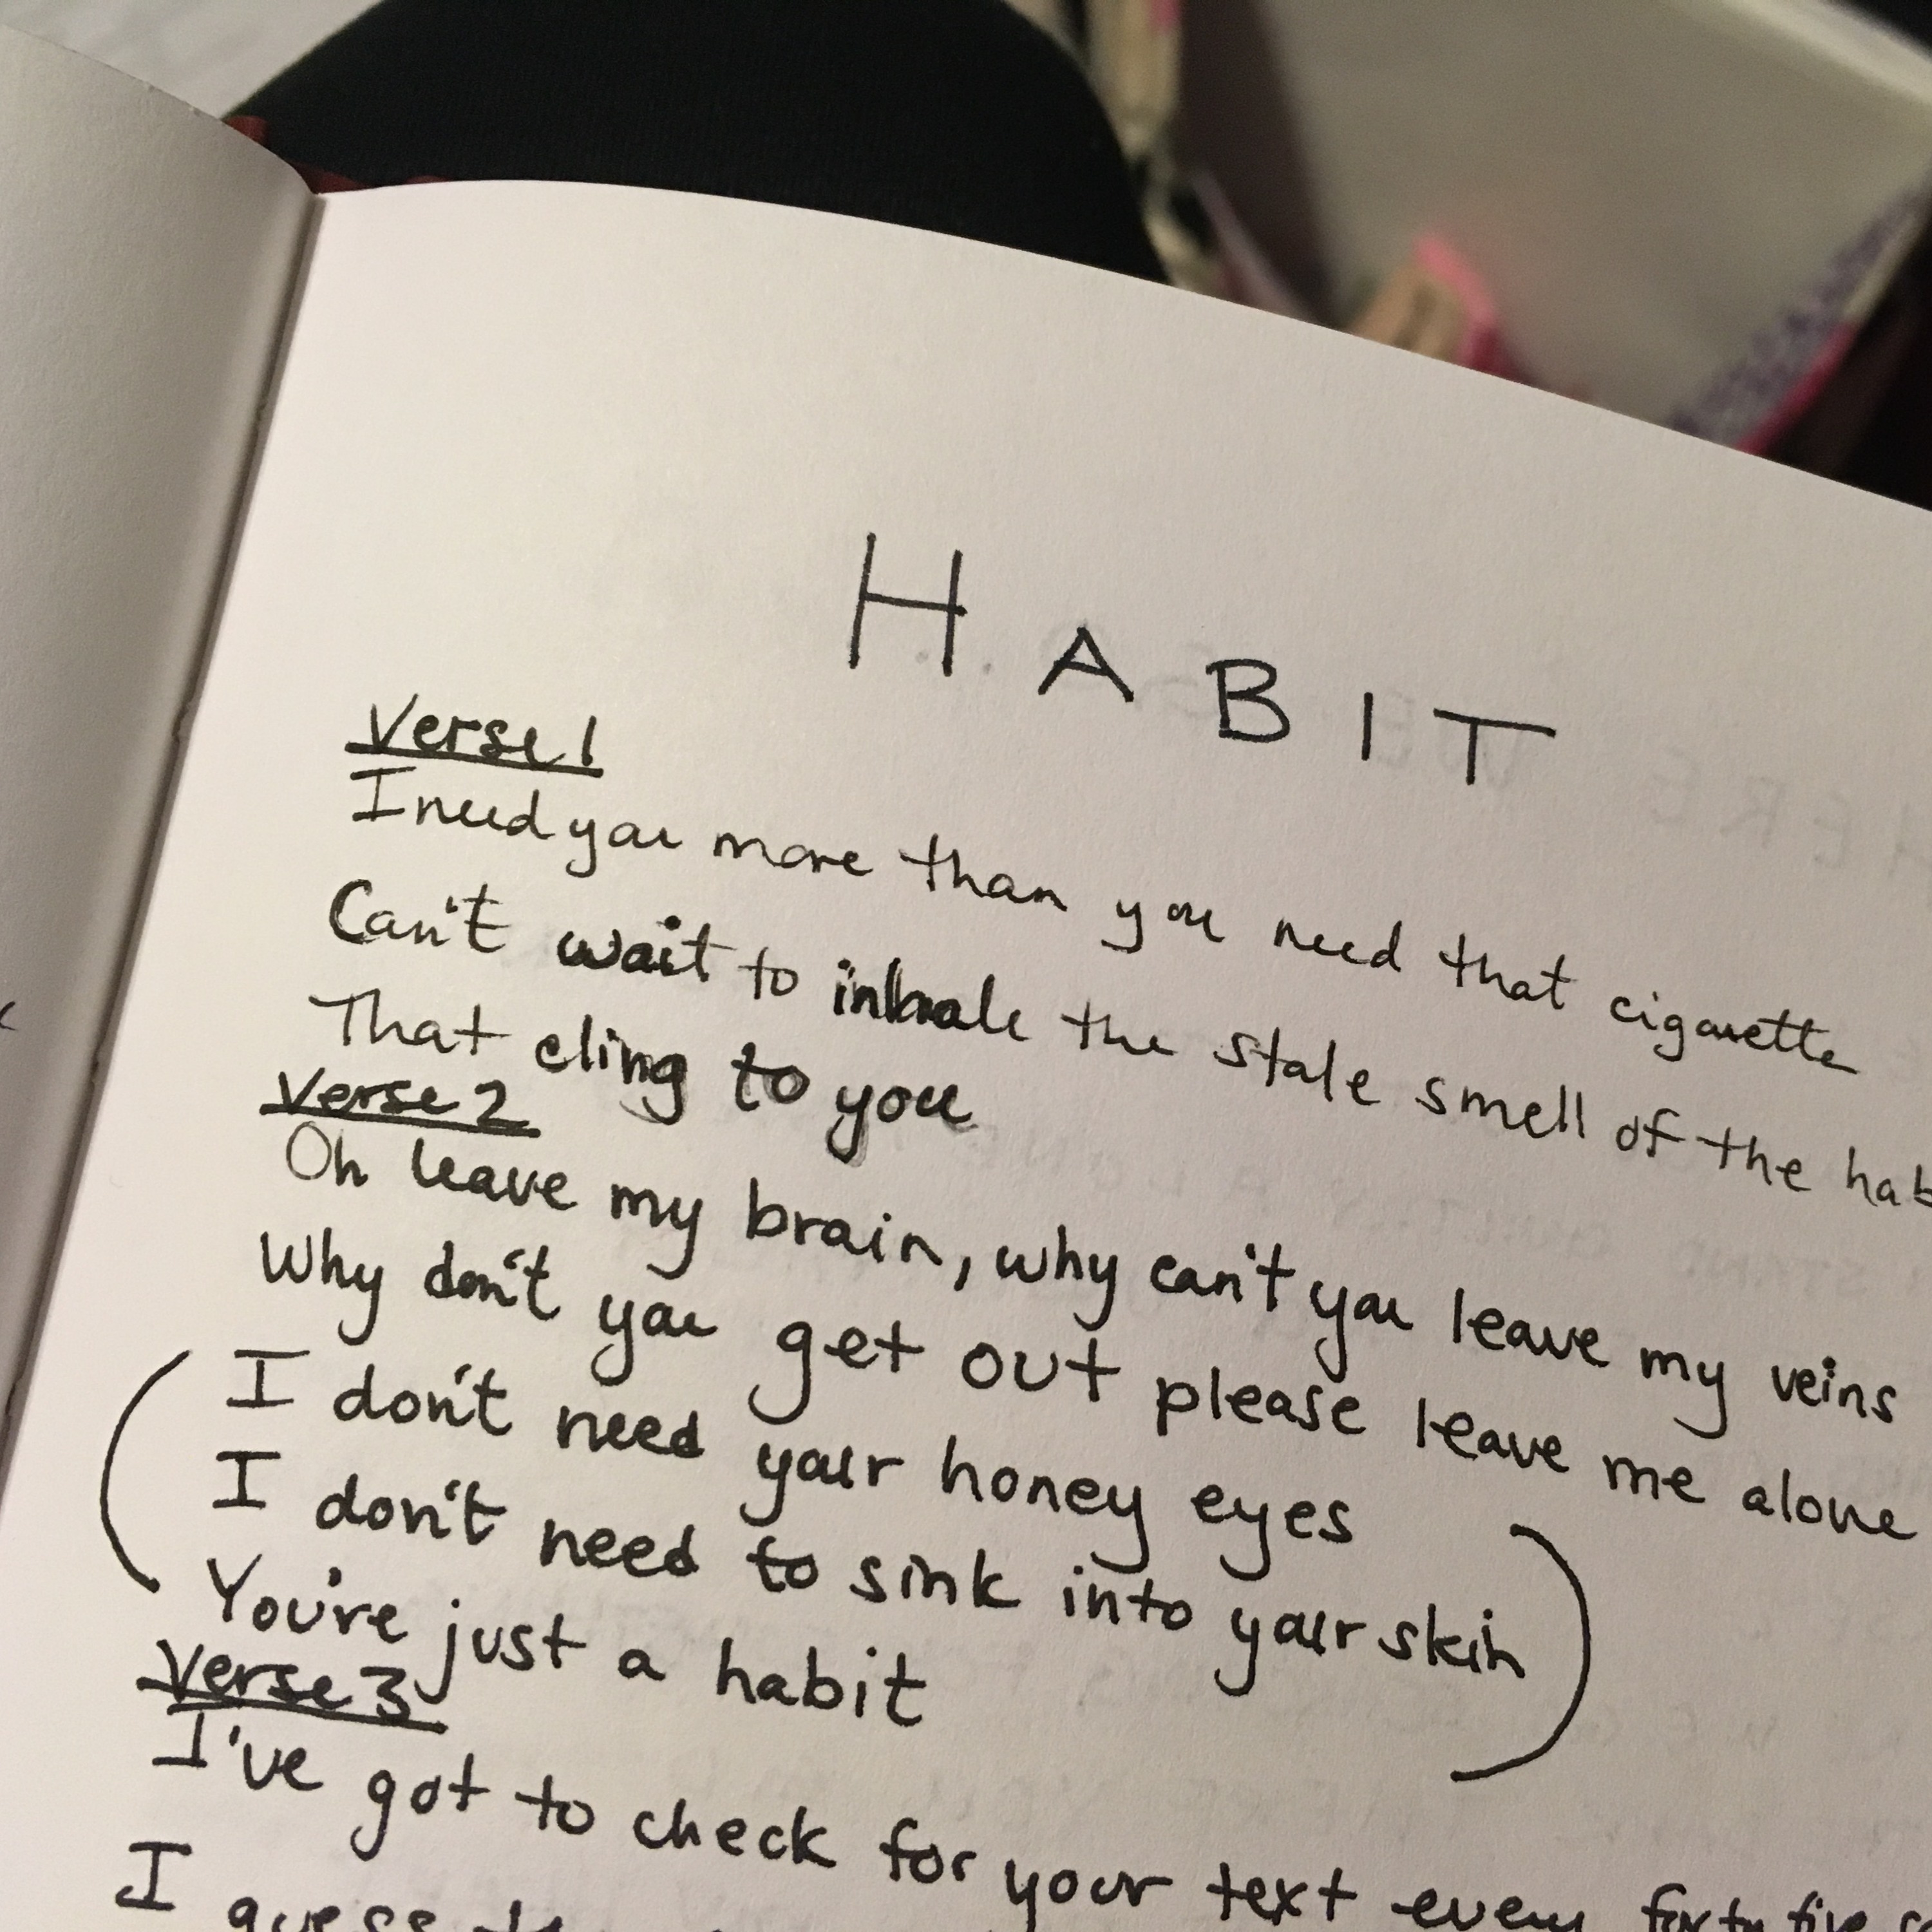 HABIT
Verse 1
I need you more than you need that cigarette
Can't wait to inhale the stale smell of the hab
That cling to you
Verse 2
Oh leave my brain, why can't you leave my veins
Why don't you get out please leave me alone
I don't need your honey eyes
I don't need to sink into your skin
You're just a habit
Verse 3
I've got to check for your text every forty five
I guess